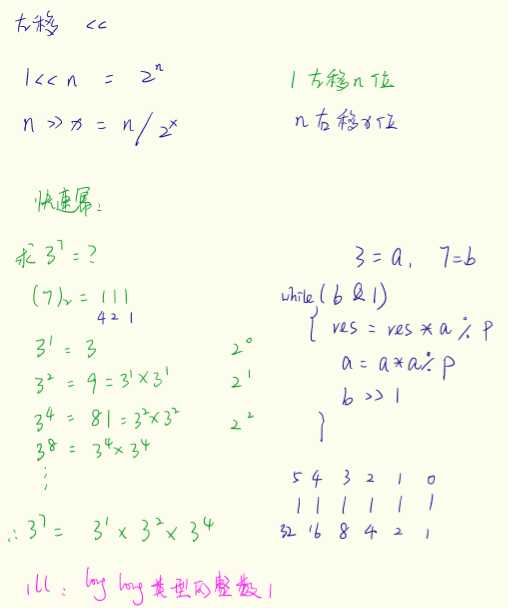 左移 <<
1<<n = 2^n 1左移n位
n>>x = n/2^x n右移x位
快速幂:
求 3^7 = ?
(7)₂ = 111
4 2 1
3^1 = 3 2^0
3^2 = 9 = 3^1×3^1 2^1
3^4 = 81 = 3^2×3^2 2^2
3^8 = 3^4×3^4
⋮
∴ 3^7 = 3^1 × 3^2 × 3^4
3=a, 7=b
while(b & 1)
{ res = res * a % P
a = a*a % P
b >> 1
}
5 4 3 2 1 0
1 1 1 1 1 1
32 16 8 4 2 1
1ll: long long类型的整数1